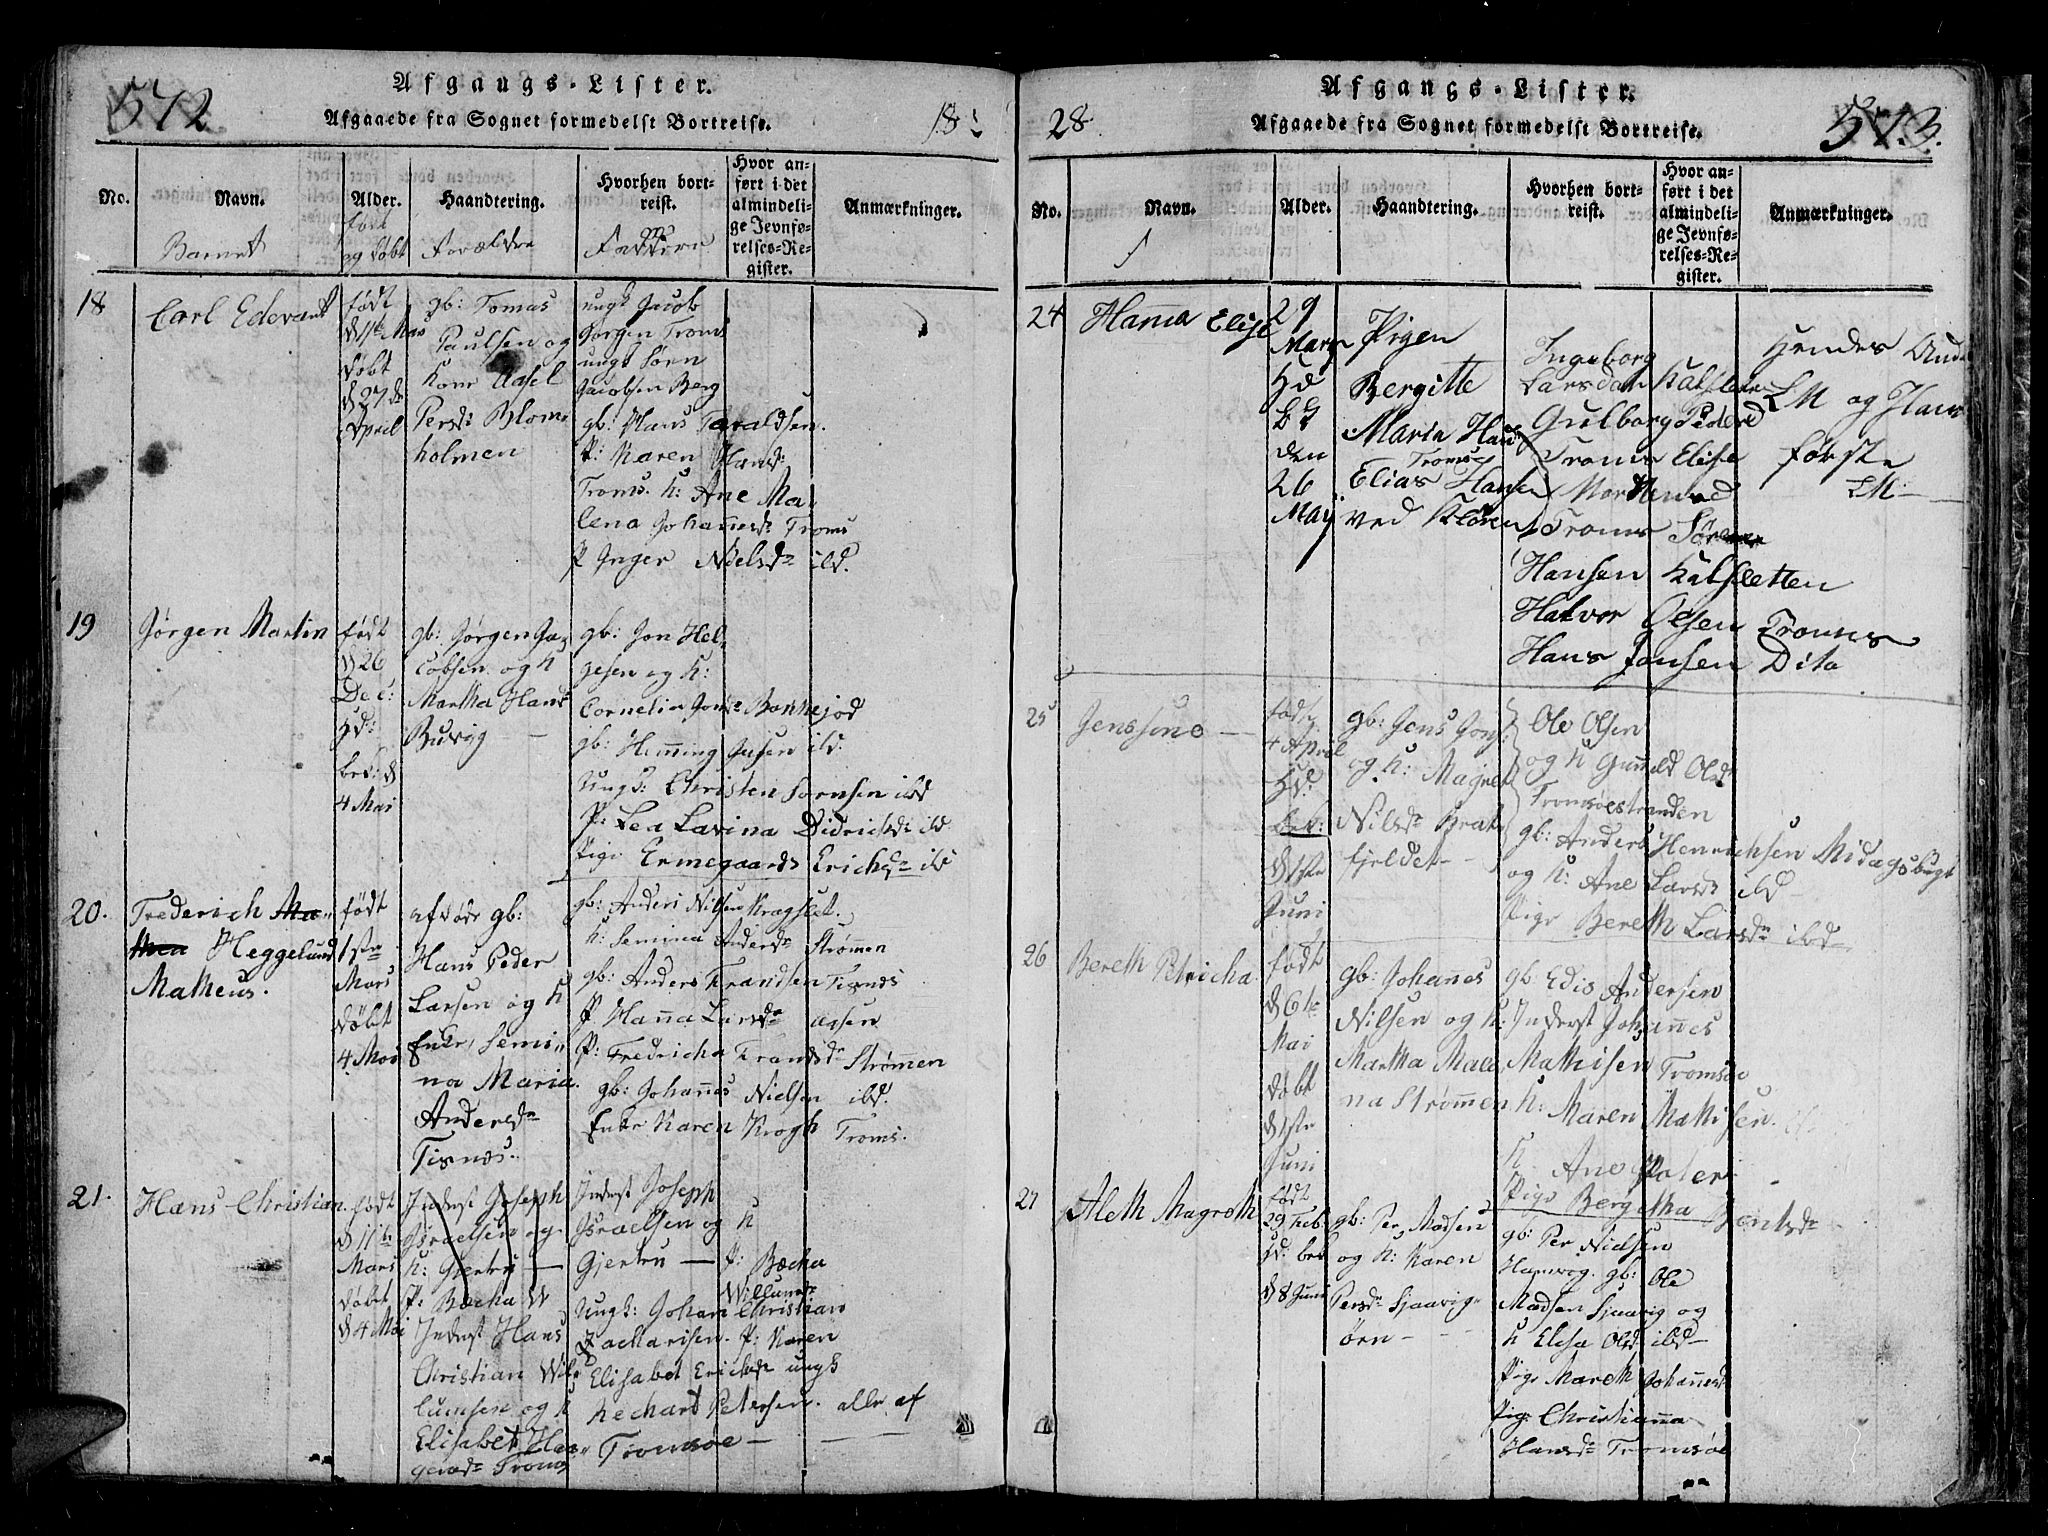 572
Afgangs-Lister.
18
Afgaaede fra Sognet formedelst Bortreise.
No.
Navn.
Alder.
Haandtering.
Hvorhen bort-
reist.
Hvor an-
ført i det
almindeli-
ge Jevnfø-
relses-Re-
gister.
Anmærkninger.
Barnet
født
og døbt
Forældre
Faddere
18
Carl Edevant
født
d 1ste Mars
døbt
d 27de
April
gb: Tomas
Paulsen og
Kone Aasel
Persd: Blom
holmen
ungk Jacob
Jørgen Troms
ungk Sørn
Jacobsen Berg
gb: Hans Taraldsen.
P: Karen Hansd:
Troms. K: Ane Ma
lena Johannesd: Troms
P Inger Nielsdr ibd.
19
Jørgen Martin
født
d 26
Dec:
Hd:
bek: d
4 Mai
gb: Jørgen Ja
cobsen og K
Martha Hansd
Buvig
gb: Jon Hel
gesen og K:
Cornelia Jonsdr Bonkejod
gb: Heming Jensen ibd:
Ungk: Christen Sørnsen ibd
P: Lea Lavina Didrichsd: ibd
Pige Ermegaards Erichsdr ibd
20.
Frederich Ma
thea Heggelund
Matheus.
født
1ste
Mars
døbt
4 Mai
afdøde gb:
Hans Peder
Larsen og K
Enke, Semi
na Maria
Andersdr
Tisnæs.
gb: Anders Nilsen Kragslet.
K: Semina Andersdr Strømmen
gb: Anders Frandsen Tisnæs
P Hanna Larsdr assen
P: Fredricha Frandsdr Strømmen
gb: Johannes Nielsen ibd.
Enke Karen Krogh Troms.
21.
Hans Christian
født
d 11te
Mars
døbt
d 4 Mai
Inderst Joseph
Israelsen og
K: Gjertru
P: Bæcha W
Inderst Hans
Christian Wil
lumsen og K
Elisabet Han
Troms
Inderst Joseph
Israelsen og K
Gjertru — P: Bæcha
Willumsdr
Ungk: Johan Christian
Zachariesen. P: Karen
Elisabet Erichsdr ungk
Rechart Petersen. alle af
Tromsøe
28
Afgangs-Lister.
573.
Afgaaede fra Sognet formedelst Bortreise.
No.
Navn.
Alder.
Haandtering.
Hvorhen bort-
reist.
Hvor an-
ført i det
almindeli-
ge Jevnfø-
relses-Re-
gister.
Anmærkninger.
24
Hanna Elise
29
Mars
Hd
bk
den
26
May
Pigen
Bergitte
Maria Hans
Troms
Elias Hansen
ved Kløven
Ingeborg
Larsdatr Kalsletten
Gulborg Peders
Troms Elise
Mortens
Troms Søren
Hansen Kalsletten
Halvor Olsen Troms
Hans Jonsen Dito
Hendes Andet
LM og Hans
første
LM
25
Jenssine
født
4 April
Hd:
bek:
d 1ste
Juni
gb: Jens Jons
og K: Magret
Nilsdr Brat
fjeldet
Ole Olsen
og K Gunild Olsd
Tromsøestranden
gb: Anders Henrichsen Midagsbugt
og K: Ane Larsd ibd
Pige Bereth Larsdr ibd
26
Bereth Petricha
født
d 6te
Mai
døbt
d 1ste
Juni
gb: Johannes
Nilsen og K:
Martha Male
na Strømmen
gb Edis Andersen
Inderst Johannes
Mathisen Tromsøe
K: Maren Mathisen.
K Ane
Pige Bergetha Bentsdr
27
Aleth Magreth
født
29 Feb
Hd: bek
d 8 Juni
gb: Per Madsen
og K: Karen
Persdr Sjaavig
ørn
gb: Per Nielsen
Hamvig. gb: Ole
Madsen Sjaavig og
K Elisa Olsd ibd
Pige Mareth Johannesd
Pige Christianna
Hansdr Tromsøe